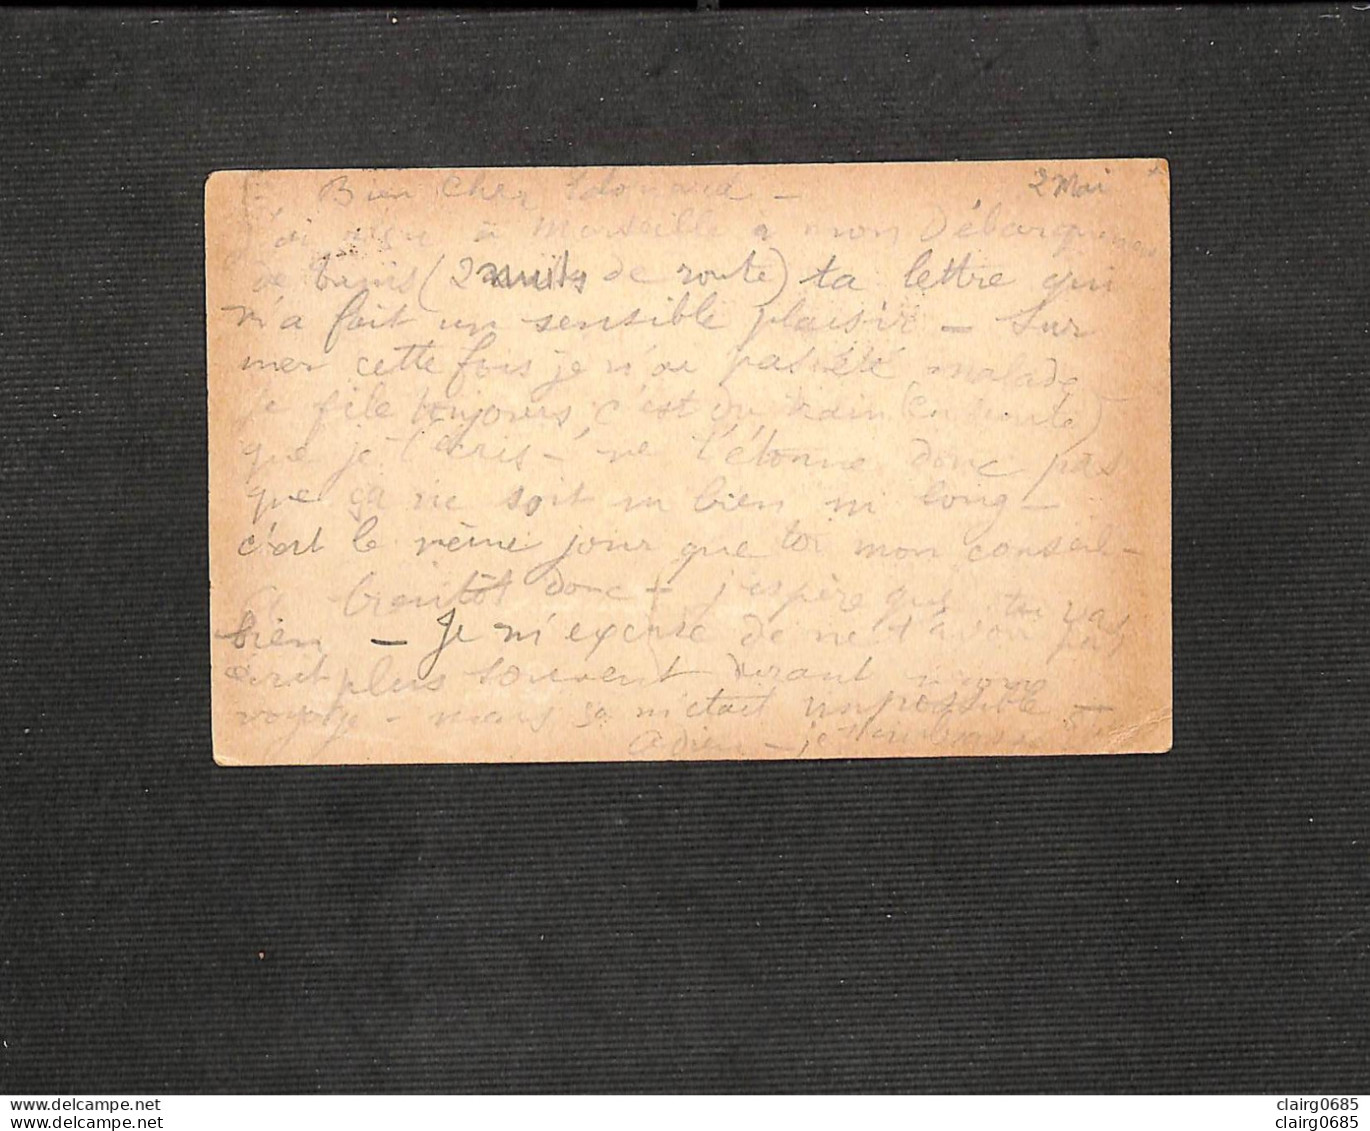 Bien cher Edouard - 2 Mai
J'ai reçu à Marseille à mon Débarquement
de Tunis (2 nuits de route) ta lettre qui
m'a fait un sensible plaisir - Sur
mer cette fois je n'ai pas été malade
je file toujours, c'est du train (en route)
que je t'écris - ne t'étonne donc pas
que ça ne soit ni bien ni long -
c'est le même jour que toi mon conseil -
A bientôt donc - j'espère que tu vas
bien - Je m'excuse de ne t'avoir pas
écrit plus souvent durant mon
voyage - mais ça m'était impossible -
adieu - je t'embrasse
www.delcampe.net
www.delcampe.net
clairg0685
clairg0685